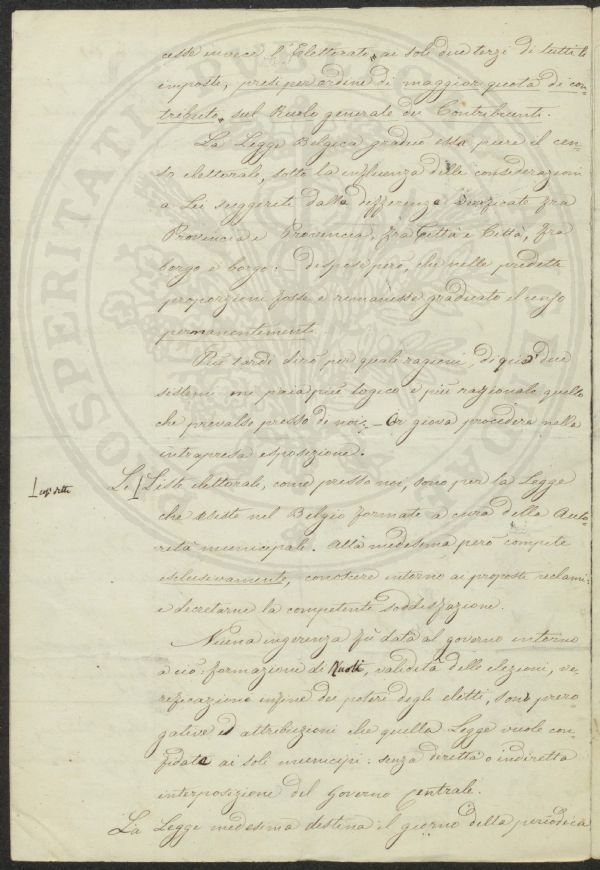 cesse invece l'Elettorato, ai soli due terzi di tutti le
imposte, presi per ordine di maggior quota di con-
tributo, sul Ruolo generale dei Contribuenti.
La Legge Belgica graduò essa pure il cen-
so elettorale, sotto la influenza delle considerazioni
a Lei suggerite dalla differenza verificata fra
Provincia e Provincia, fra Città e Città, fra
borgo e borgo: dispose però, che nelle predette
proporzioni fosse e rimanesse graduato il censo
permanentemente.
Più tardi dirò per quale ragioni, di quei due
sistemi mi paia più logico e più razionale quello
che prevalse presso di noi - Or giova procedere nella
intrapresa esposizione.
Le Liste elettorale, come presso noi, sono per la Legge
così dette
che esiste nel Belgio formate a cura della Auto-
rità municipale. Alla medesima però compete
esclusivamente, conoscere intorno ai proposti reclami
e decretarne la competente soddisfazione.
Niuna ingerenza fu data al governo intorno
a ciò: formazioni di Ruoli, validità delle elezioni, ve-
rificazione infine dei poteri degli eletti, sono prero
gative ed attribuzioni che quella Legge vuole con-
fidate ai soli municipi: senza diretta o indiretta
interposizione del Governo Centrale.
La Legge medesima destina il giorno della periodica